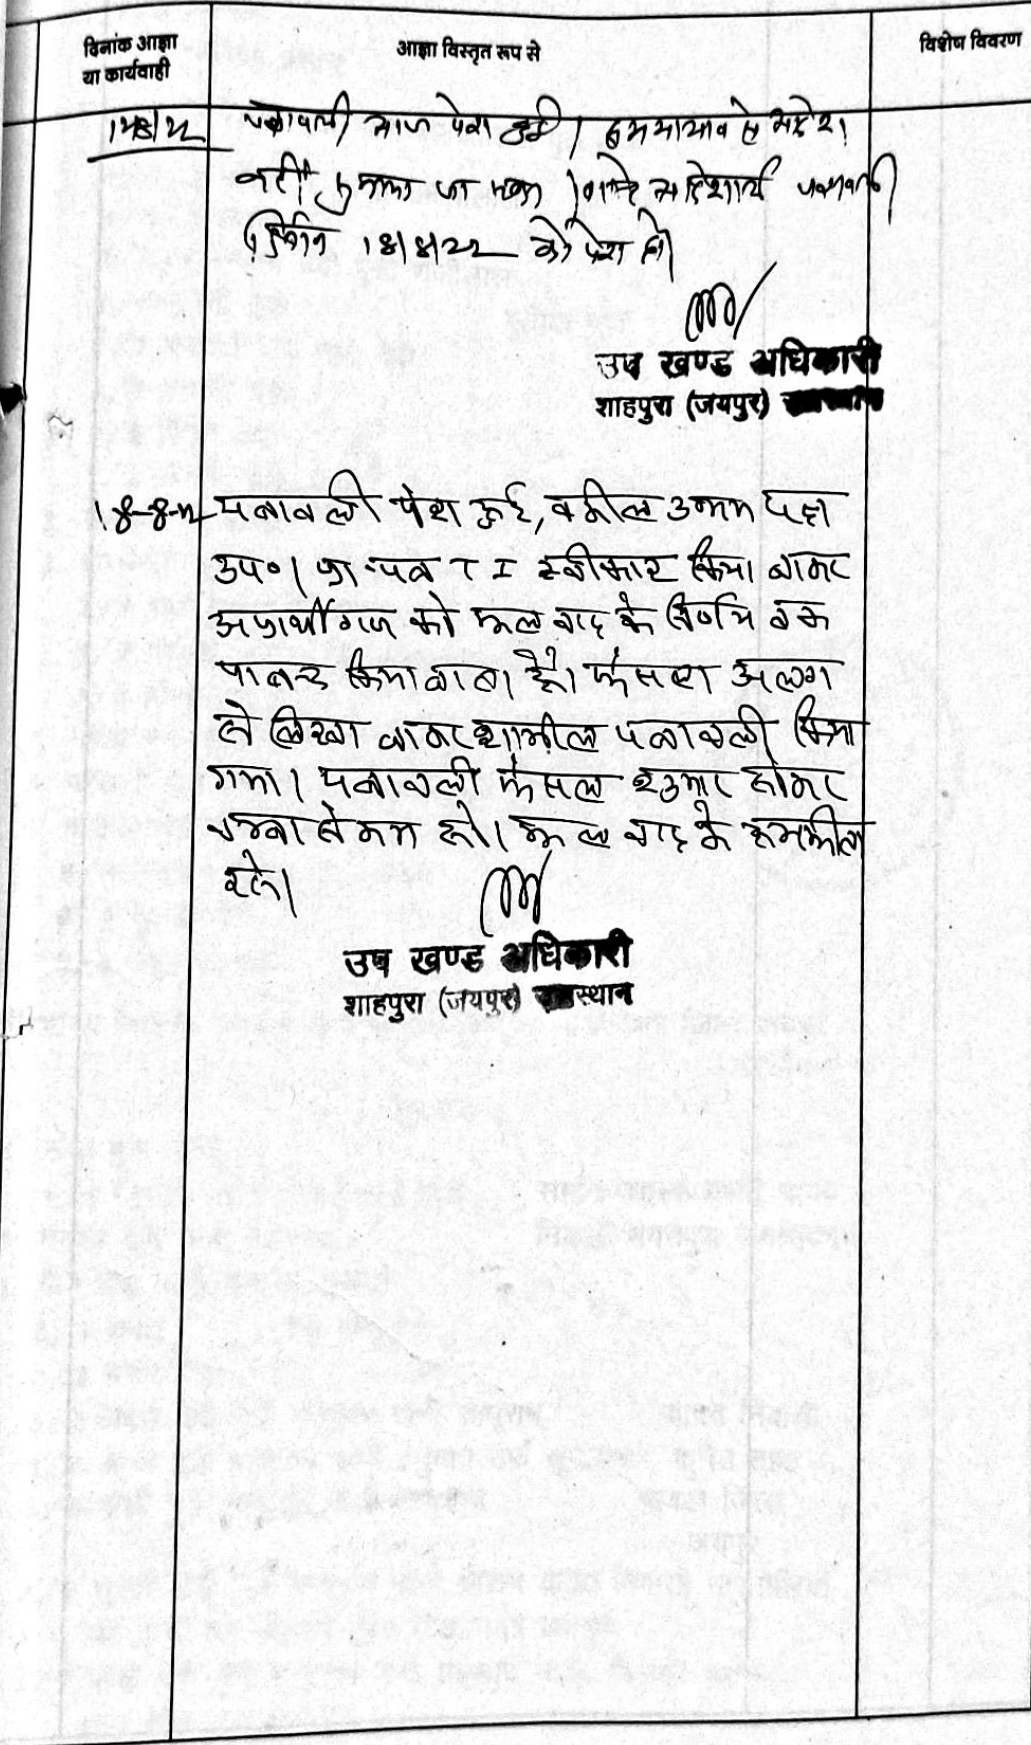 दिनांक आज्ञा
या कार्यवाही
आज्ञा विस्तृत रूप से
विशेष विवरण
पत्रावली आज पेश हुई। समयाभाव से आदेश
नहीं सुनाया जा सका। वास्ते आदेशार्थ पत्रावली
दिनांक 18/8/22 को पेश हो।
उप खण्ड अधिकारी
शाहपुरा (जयपुर) राजस्थान
18-8-22 पत्रावली पेश हुई, वकील उभय पक्ष
उप०। प्रा.पत्र T I स्वीकार किया जाकर
अप्रार्थीगण को मूल वाद के निर्णय तक
पाबन्द किया जाता है। फैसला अलग
से लिखा जाकर शामील पत्रावली किया
गया। पत्रावली फैसल शुमार होकर
नम्बर से कम हो। मूल वाद के हमशील
रहे।
उप खण्ड अधिकारी
शाहपुरा (जयपुर) राजस्थान